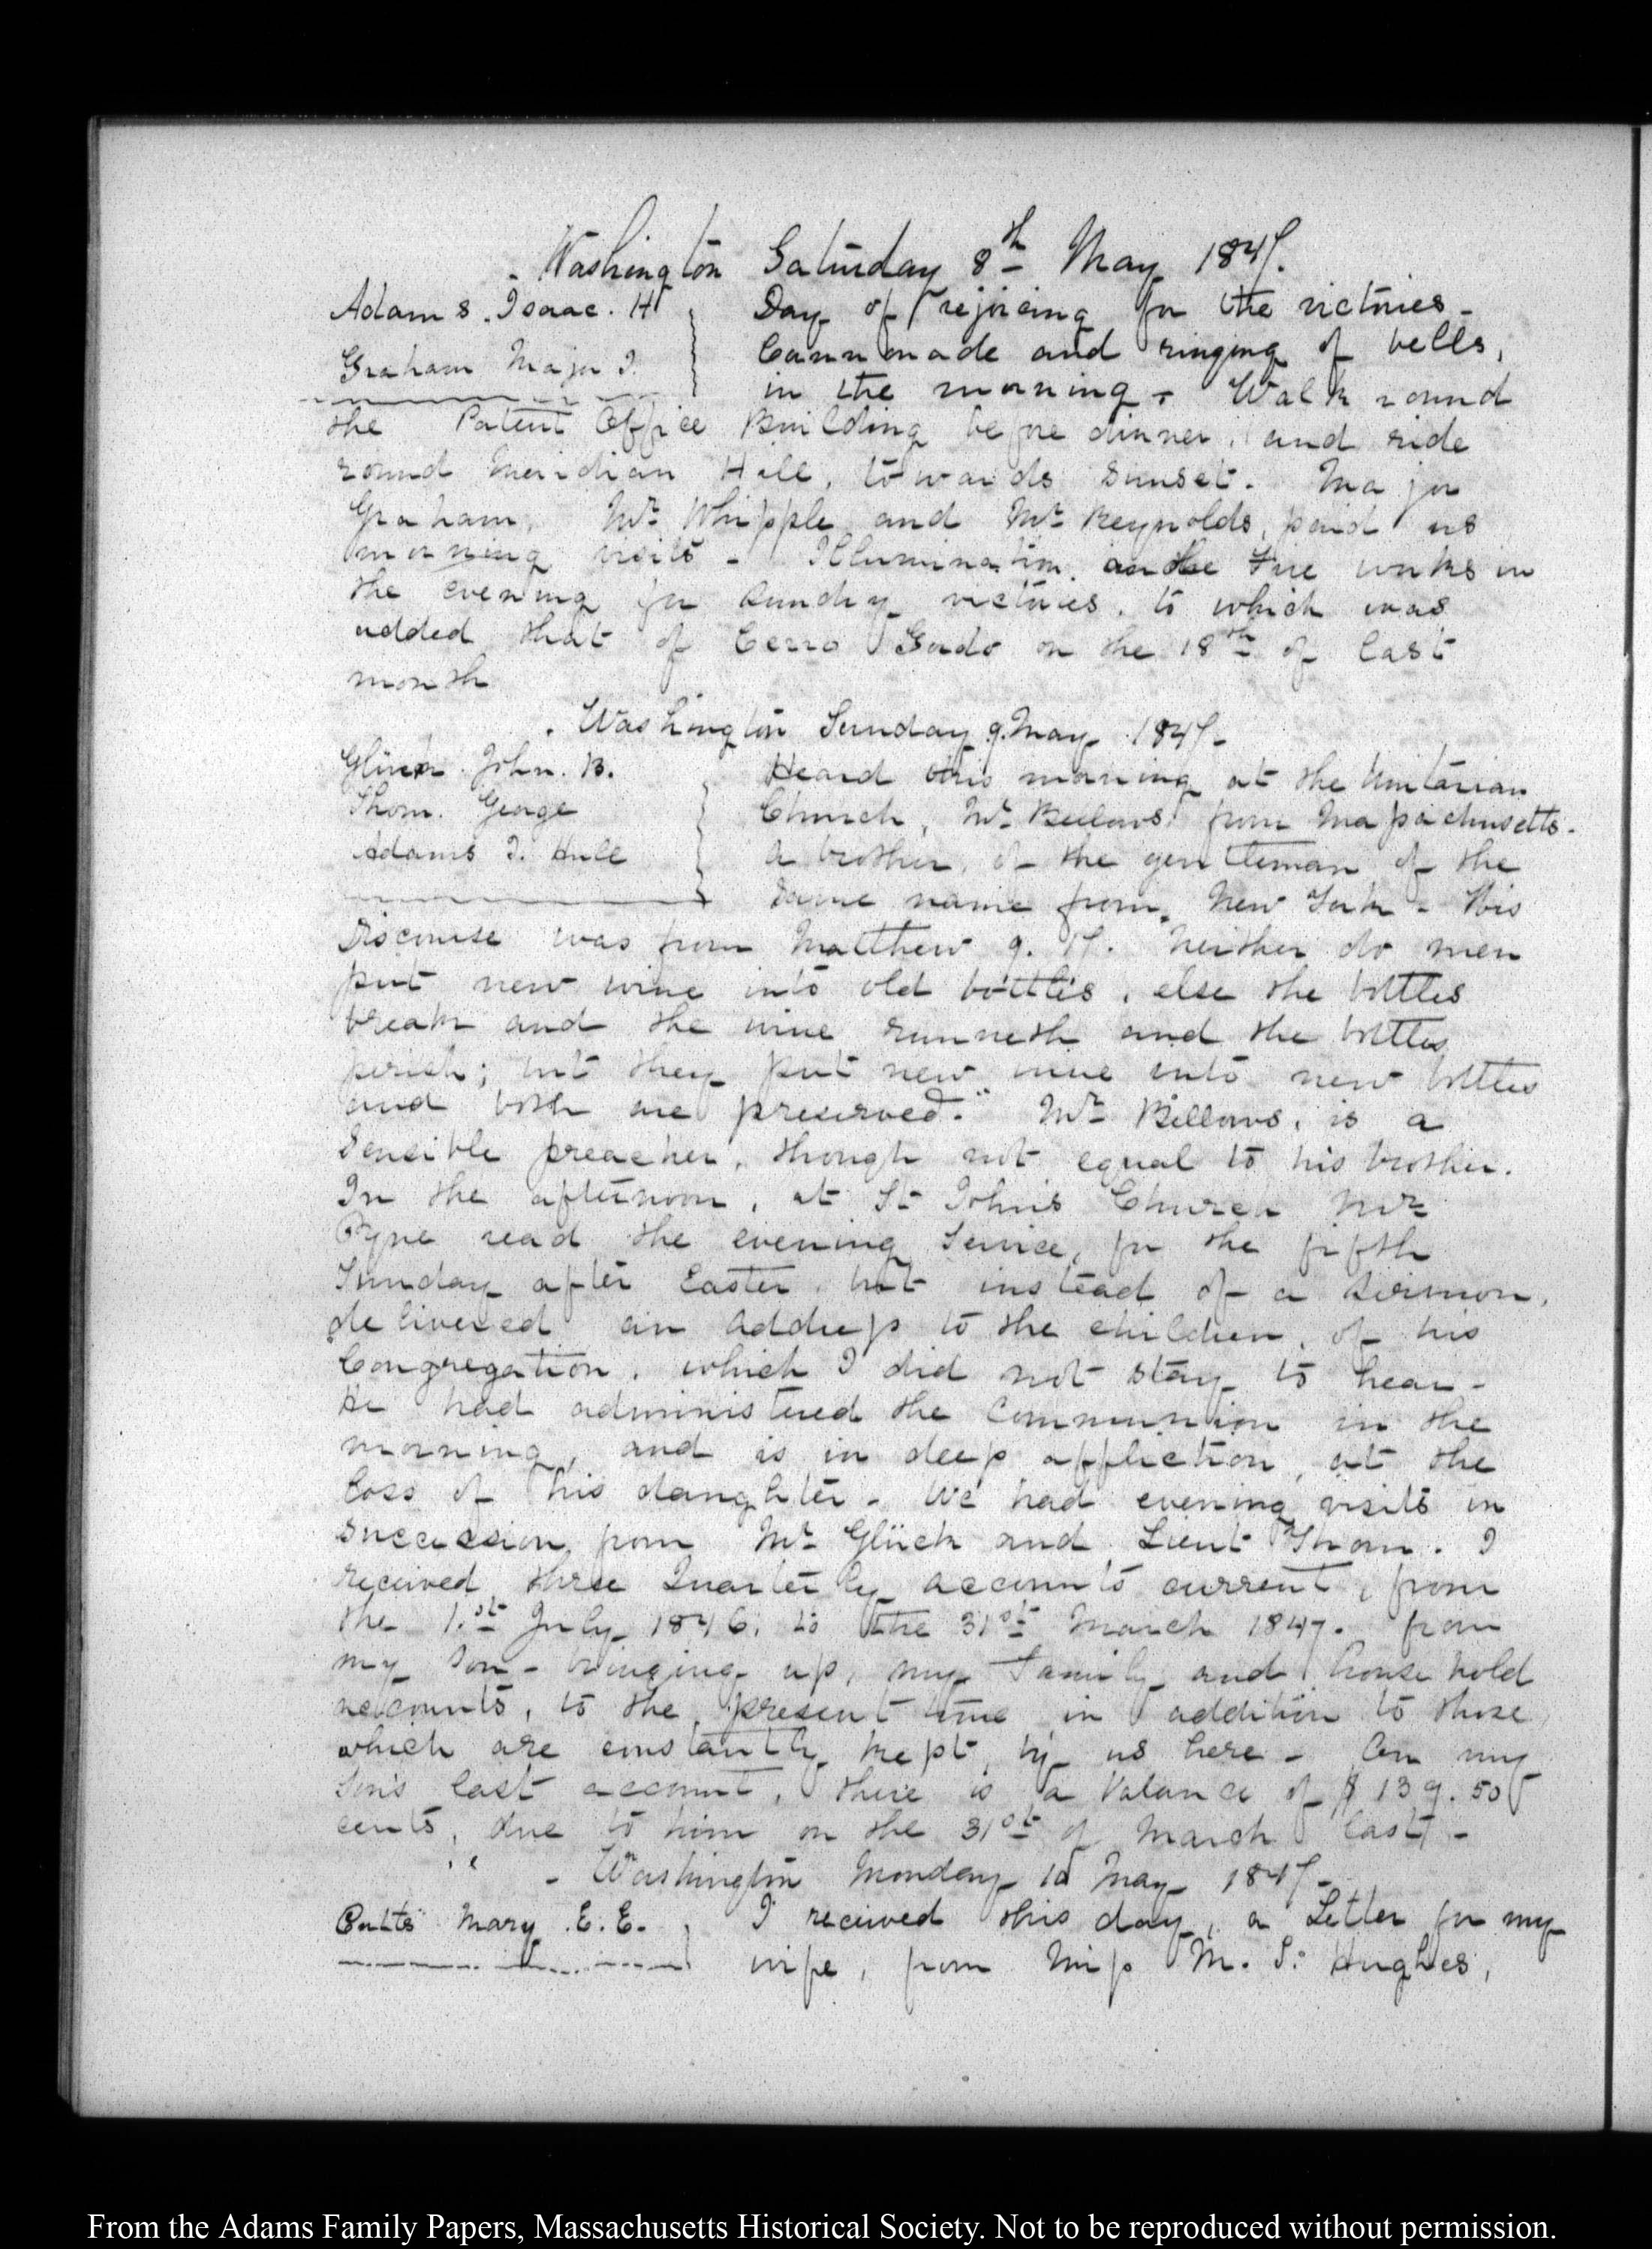 Washington Saturday 8th May 1847.
Adams. Isaac. H
Graham Major J.
Day of rejoicing for the victories -
Cannonade and ringing of bells,
in the morning - Walk round
the Patent Office Building before dinner, and ride
round Meridian Hill, towards Sunset. Major
Graham, Mr Whipple and Mr Reynolds, paid us
morning visits - Illumination and Fire works in
the evening for sundry victories, to which was
added that of Cerro Gordo on the 18th of last
month
Washington Sunday 9. May 1847 -
Glück. John. B.
Thom. George
Adams I. Hull
Heard this morning at the Unitarian
Church, Mr Bellows from Massachusetts -
a brother, of the gentleman of the
same name from New York - His
Discourse was from Matthew 9. 17. Neither do men
put new wine into old bottles, else the bottles
break and the wine runneth and the bottles
perish; but they put new wine into new bottles
and both are preserved." Mr Bellows, is a
Sensible preacher, though not equal to his brother.
In the afternoon, at St John's Church Mr
Pyne read the evening Service, for the fifth
Sunday after Easter, but instead of a Sermon,
delivered an Address to the children, of his
Congregation, which I did not stay to hear -
He had administered the Communion in the
morning, and is in deep affliction, at the
loss of his daughter - We had evening visits in
succession from Mr Glück and Lieut Thom. I
received three Quarterly accounts current, from
the 1.st July 1846, to the 31st March 1847. from
my Son - bringing up, my Family and household
accounts, to the present time in addition to those
which are constantly kept, by us here - On my
Son's last account, there is a balance of $139.50
cents, due to him on the 31st of March last -
- Washington Monday 10 May 1847 -
Cutts Mary. E. E.
I received this day, a Letter for my
wife, from Miss M. S. Hughes,
From the Adams Family Papers, Massachusetts Historical Society. Not to be reproduced without permission.